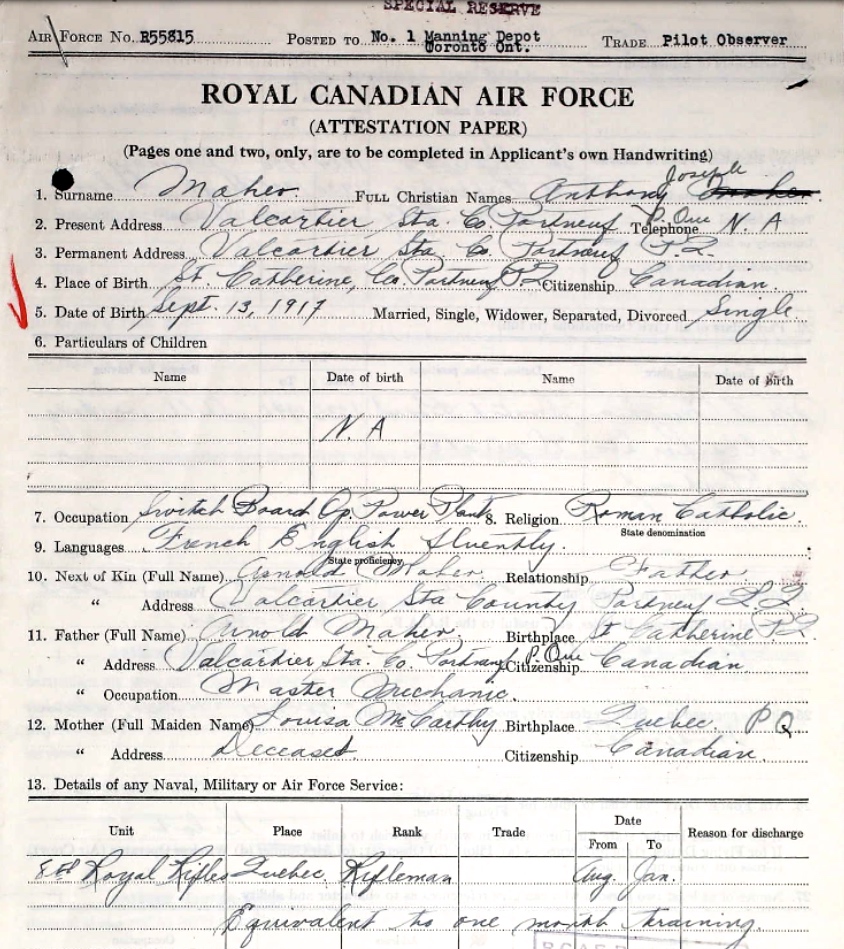 SPECIAL RESERVE
AIR FORCE NO. R55815 POSTED TO No. 1 Manning Depot TRADE Pilot Observer
Toronto Ont.
ROYAL CANADIAN AIR FORCE
(ATTESTATION PAPER)
(Pages one and two, only, are to be completed in Applicant's own Handwriting)
Joseph
1. Surname Maher FULL Christian Names Anthony
2. Present Address Valcartier Sta. Co. Portneuf P. Que Telephone N. A
3. Permanent Address Valcartier Sta. Co. Portneuf P.Q.
4. Place of Birth St. Catherine, Co. Portneuf P Q Citizenship Canadian.
5. Date of Birth Sept. 13, 1917 Married, Single, Widower, Separated, Divorced Single
6. Particulars of Children
Name Date of birth Name Date of birth
N. A
7. Occupation Switch Board Op Power Plant 8. Religion Roman Catholic.
State denomination
9. Languages French English fluently.
State proficiency
10. Next of Kin (Full Name) Arnold Maher Relationship Father
" Address Valcartier Sta County Portneuf P.Q.
11. Father (Full Name) Arnold Maher. Birthplace St Catherine P Q
" Address Valcartier Sta. Co. Portneuf P. Que Citizenship Canadian
" Occupation Master Mechanic.
12. Mother (Full Maiden Name) Louisa McCarthy Birthplace Quebec, P Q
" Address Deceased. Citizenship Canadian.
13. Details of any Naval, Military or Air Force Service:
Unit Place Rank Trade Date Reason for discharge
From To
8th Royal Rifles Quebec Rifleman Aug. Jan.
Equivalent to one month training.